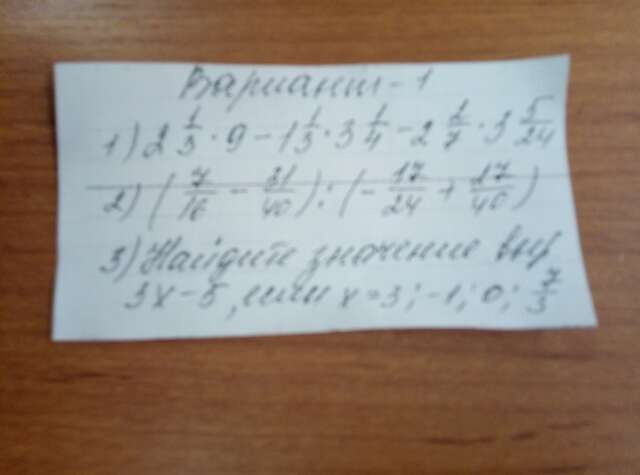 Вариант-1
1) 2 1/3 · 9 - 1 1/3 · 3 1/4 - 2 2/7 · 3 5/24
2) (7/16 - 31/40) : (- 17/24 + 17/40)
3) Найдите значение выр
3x-5, если x=3; -1; 0; 7/3